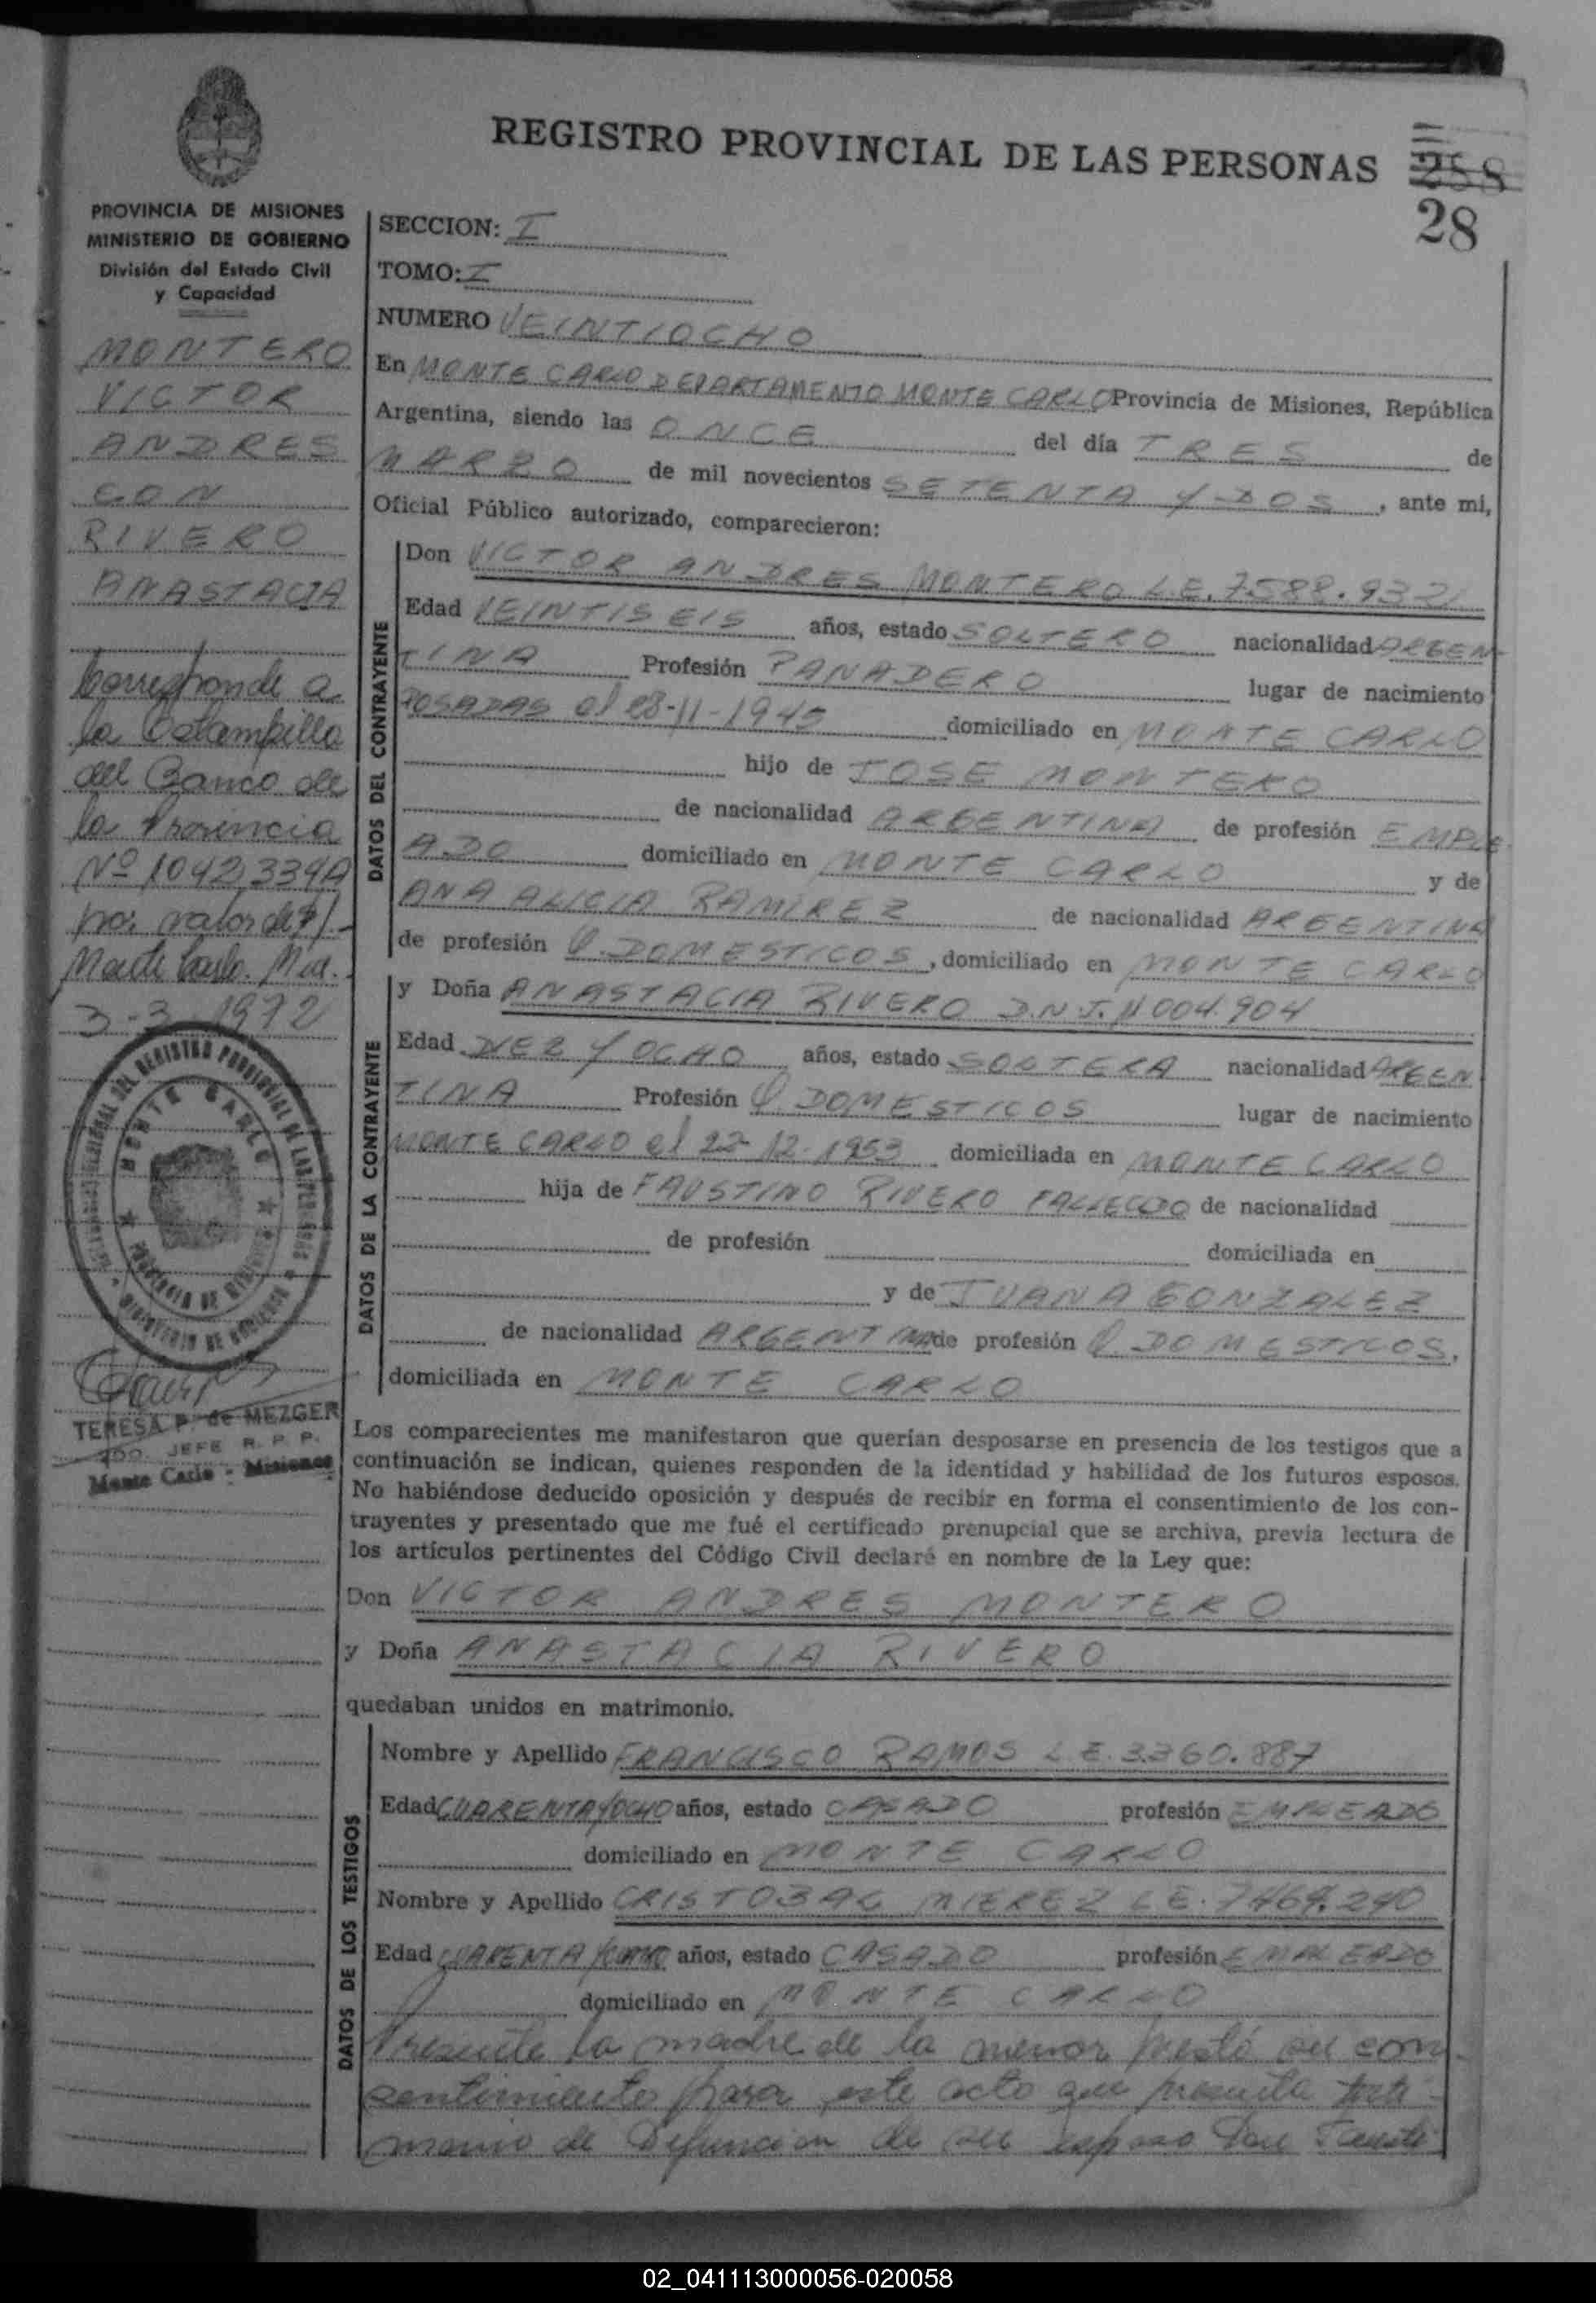 REGISTRO PROVINCIAL DE LAS PERSONAS
258
28
PROVINCIA DE MISIONES
MINISTERIO DE GOBIERNO
División del Estado Civil
y Capacidad
MONTERO
VICTOR
ANDRES
CON
RIVERO
ANASTACIA
Corresponde a
la Estampilla
del Banco de
la Provincia
Nº 1042,334A
por valor de $1.-
Monte Carlo. Mnes.
3-3-1972
MONTE CARLO
PROVINCIA DE MISIONES
MINISTERIO DE GOBIERNO
TERESA P. de MEZGER
JEFE R. P. P.
Monte Carlo - Misiones
SECCION: I
TOMO: I
NUMERO VEINTIOCHO
En MONTE CARLO DEPARTAMENTO MONTE CARLO Provincia de Misiones, República
Argentina, siendo las ONCE del día TRES de
MARZO de mil novecientos SETENTA Y DOS, ante mi,
Oficial Público autorizado, comparecieron:
DATOS DEL CONTRAYENTE
Don VICTOR ANDRES MONTERO L.E. 7.588.932
Edad VEINTISEIS años, estado SOLTERO nacionalidad ARGEN-
TINA Profesión PANADERO lugar de nacimiento
POSADAS el 28-11-1945 domiciliado en MONTE CARLO
hijo de JOSE MONTERO
de nacionalidad ARGENTINA de profesión EMPLE
ADO domiciliado en MONTE CARLO y de
ANA ALICIA RAMIREZ de nacionalidad ARGENTINA
de profesión Q. DOMESTICOS, domiciliado en MONTE CARLO
DATOS DE LA CONTRAYENTE
y Doña ANASTACIA RIVERO D.N.I. 11.004.904
Edad DIEZ Y OCHO años, estado SOLTERA nacionalidad ARGEN
TINA Profesión Q. DOMESTICOS lugar de nacimiento
MONTE CARLO el 22-12-1953 domiciliada en MONTE CARLO
hija de FAUSTINO RIVERO FALLECIDO de nacionalidad
de profesión domiciliada en
y de JUANA GONZALEZ
de nacionalidad ARGENTINA de profesión Q. DOMESTICOS.
domiciliada en MONTE CARLO
Los comparecientes me manifestaron que querían desposarse en presencia de los testigos que a
continuación se indican, quienes responden de la identidad y habilidad de los futuros esposos.
No habiéndose deducido oposición y después de recibir en forma el consentimiento de los con-
trayentes y presentado que me fué el certificado prenupcial que se archiva, previa lectura de
los artículos pertinentes del Código Civil declaré en nombre de la Ley que:
Don VICTOR ANDRES MONTERO
y Doña ANASTACIA RIVERO
quedaban unidos en matrimonio.
DATOS DE LOS TESTIGOS
Nombre y Apellido FRANCISCO RAMOS L.E. 3.360.887
Edad CUARENTA Y OCHO años, estado CASADO profesión EMPLEADO
domiciliado en MONTE CARLO
Nombre y Apellido CRISTOBAL MIEREZ L.E. 7.464.240
Edad CUARENTA Y años, estado CASADO profesión EMPLEADO
domiciliado en MONTE CARLO
Presente la madre de la menor prestó su con-
sentimiento para este acto que presenta testi-
monio de Defuncion de su esposo Don Fausti
02_041113000056-020058